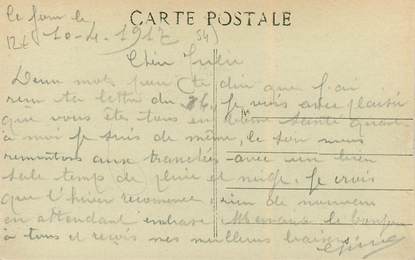 CARTE POSTALE
le Jour le
10-4-1917
Cher
Deux mots pour te dire que j'ai
reçu ta lettre du 26, je vois avec plaisir
que vous êtes tous en bonne santé quant
à moi je suis de même, ce soir nous
remontons aux tranchées avec un bien
sale temps de pluie et neige. Je crois
que l'hiver recommence rien de nouveau
en attendant embrasse le bonjour
à tous et reçois mes meilleurs baisers